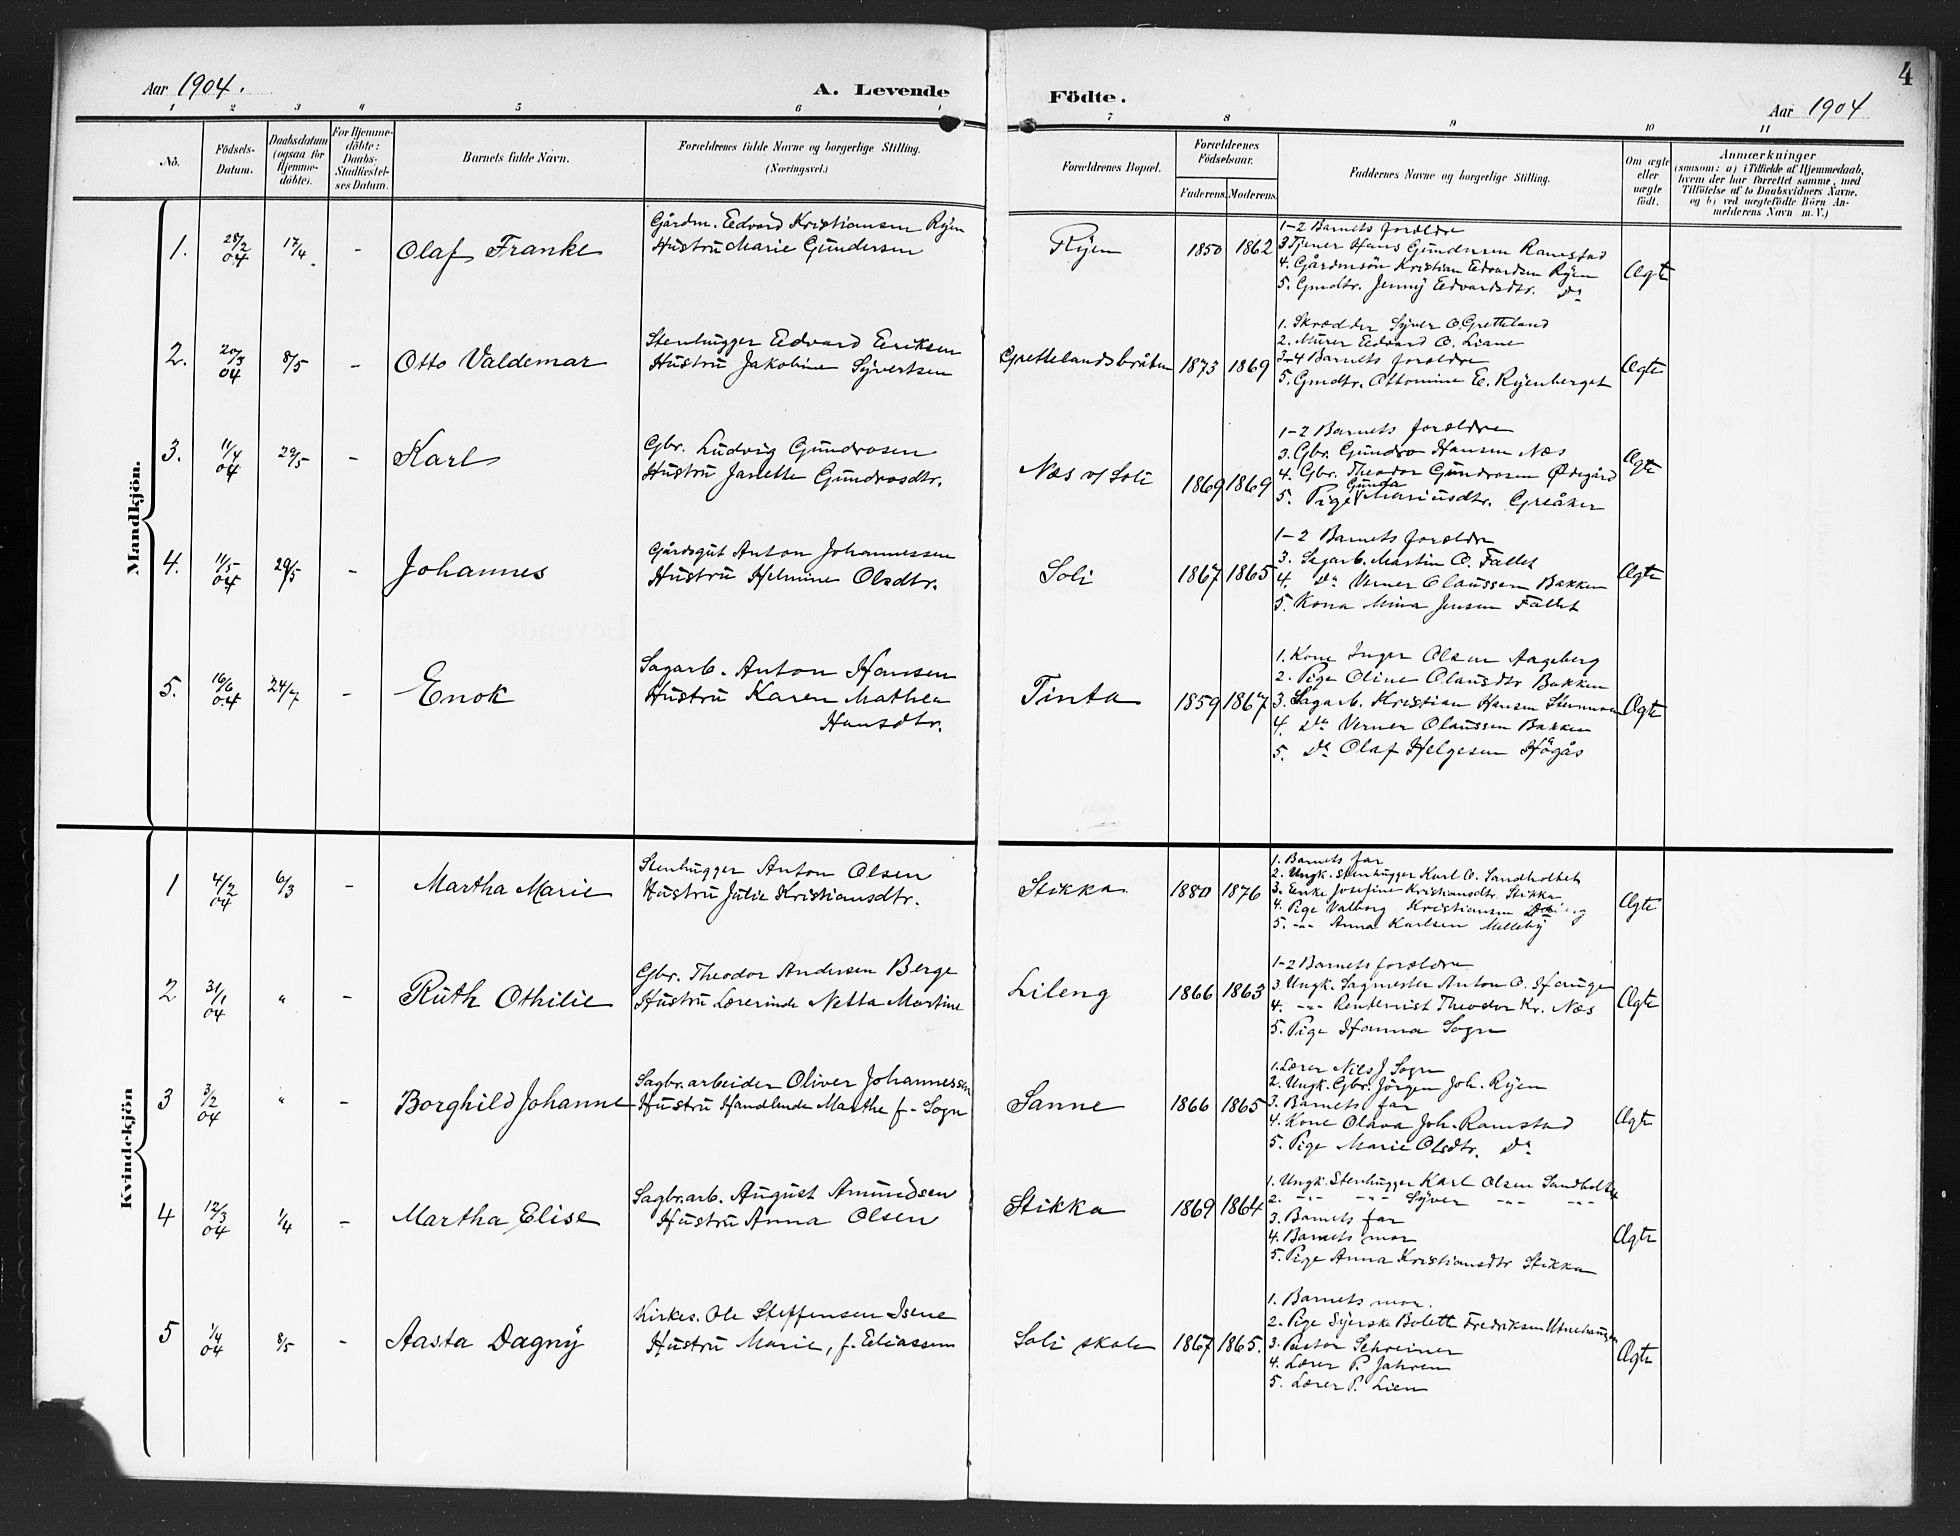 Aar 1904.
A. Levende
Födte.
Aar 1904
4
1 2 3 4 5 6 7 8 9 10 11
No.
Födsels-Datum.
Daabsdatum (ogsaa for Hjemme-döbte).
For Hjemme-döbte: Daabs-Stadfæstel-ses Datum.
Barnets fulde Navn.
Forældrenes fulde Navne og borgerlige Stilling. (Næringsvei.)
Forældrenes Bopæl.
Forældrenes Födselsaar.
Faderens. Moderens.
Faddernes Navne og borgerlige Stilling.
Om ægte eller uægte födt.
Anmærkninger
(saasom: a) i Tilfælde af Hjemmedaab, hvem der har forrettet samme, med Tilföielse af to Daabsvidners Navne. og b) ved uægtefödte Börn An-melderens Navn m. V.)
Mandkjön.
1. 28/2 04 17/4 - Olaf Franke
Gårdm. Edvard Kristiansen Ryen
Hustru Marie Gundersen
Ryen 1850 1862
1-2 Barnets foreldre
3 Tjener Hans Gundersen Ramstad
4. Gårdmsön Kristian Edvardsen Ryen
5. Gmdtr. Jenny Edvardsdtr. Do
Ægte
2. 20/3 04 8/5 - Otto Valdemar
Stenhugger Edvard Eriksen
Hustru Jakobine Syvertsen
Grettelandsbråten 1873 1869
1. Skrædder Syver O. Gretteland
2. Murer Edvard O. Liane
3-4 Barnets foreldre
5. Gmdtr. Ottomine E. Ryenberget
Ægte
3. 11/4 04 29/5 - Karl
Gbr. Ludvig Gundrosen
Hustru Janette Gundrosdtr.
Næs v/ Soli 1869 1869
1-2 Barnets foreldre
3. Gbr. Gundro Hansen Næs
4. Gbr. Theodor Gundrosen Ødegård
5. Pige Gunda Mariusdtr. Greåker
Ægte
4. 11/5 04 29/5 - Johannes
Gårdsgut Anton Johannessen
Hustru Helmine Olsdtr.
Soli 1867 1865
1-2 Barnets foreldre
3. Sagarb. Martin O. Fallet
4. Do Verner Olaussen Bakken
5. Kona Mina Jensen Fallet
Ægte
5. 16/6 04 24/7 - Enok
Sagarb. Anton Hansen
Hustru Karen Mathea
Hansdtr.
Tinta 1859 1867
1. Kone Inger Olsen Aageberg
2. Pige Oline Olausdtr Bakken
3. Sagarb. Kristian Hansen
4. Do Verner Olaussen Bakken
5. Do Olaf Helgesen Högås
Ægte
Kvindekjön
1 4/2 04 6/3 - Martha Marie
Stenhugger Anton Olsen
Hustru Julie Kristiansdtr.
Stikka 1880 1876
1. Barnets far
2. Ungk. Stenhugger Karl O. Sandholtet
3. Enke Josefine Kristiansdtr. Stikka
4. Pige Valborg Kristiansen
5. -"- Anna Karlsen Melleby
Ægte
2 31/1 04 " - Ruth Othilie
Gbr. Theodor Andersen Berge
Hustru Lærerinde Netta Martine
Lileng 1866 1863
1-2 Barnets foreldre
3. Ungk. Sagmester Anton O. Hauge
4. -"- Rentenist Theodor Kr. Næs
5. Pige Hanna Sogn
Ægte
3 3/2 04 " - Borghild Johanne
Sagbr.arbeider Oliver Johannessen
Hustru Handlende Marthe f. Sogn
Sanne 1866 1865
1. Lærer Nils J. Sogn
2. Ungk. Gbr. Jörgen Joh. Ryen
3. Barnets far
4. Kone Olava Joh. Ramstad
5. Pige Marie Olsdtr. Do
Ægte
4 12/3 04 1/4 - Martha Elise
Sagbr.arb. August Amundsen
Hustru Anna Olsen
Stikka 1869 1864
1. Ungk. Stenhugger Karl Olsen Sandholtet
2. -"- -"- Syver -"- -"-
3. Barnets far
4. Barnets mor
5. Pige Anna Kristiansdtr Stikka
Ægte
5 1/4 04 8/5 - Aasta Dagny
Kirkes. Ole Steffensen Isene
Hustru Marie, f. Eliassen
Soli skole 1867 1865.
1. Barnets mor.
2. Pige Syerske Bolette Fredriksen
3. Pastor Schreiner
4. Lærer P. Jahren
5. Lærer P. Lien
Ægte